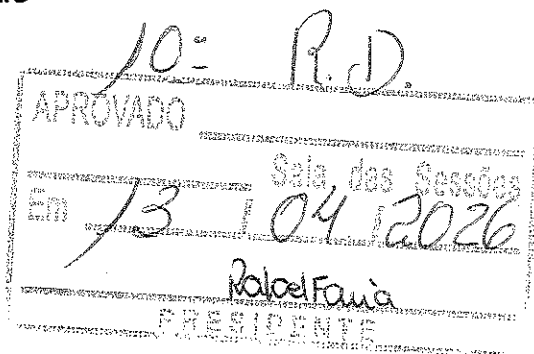 10ª R.D.
APROVADO
Sala das Sessões
Em 13 / 04 / 2026
Rafael Faria
PRESIDENTE